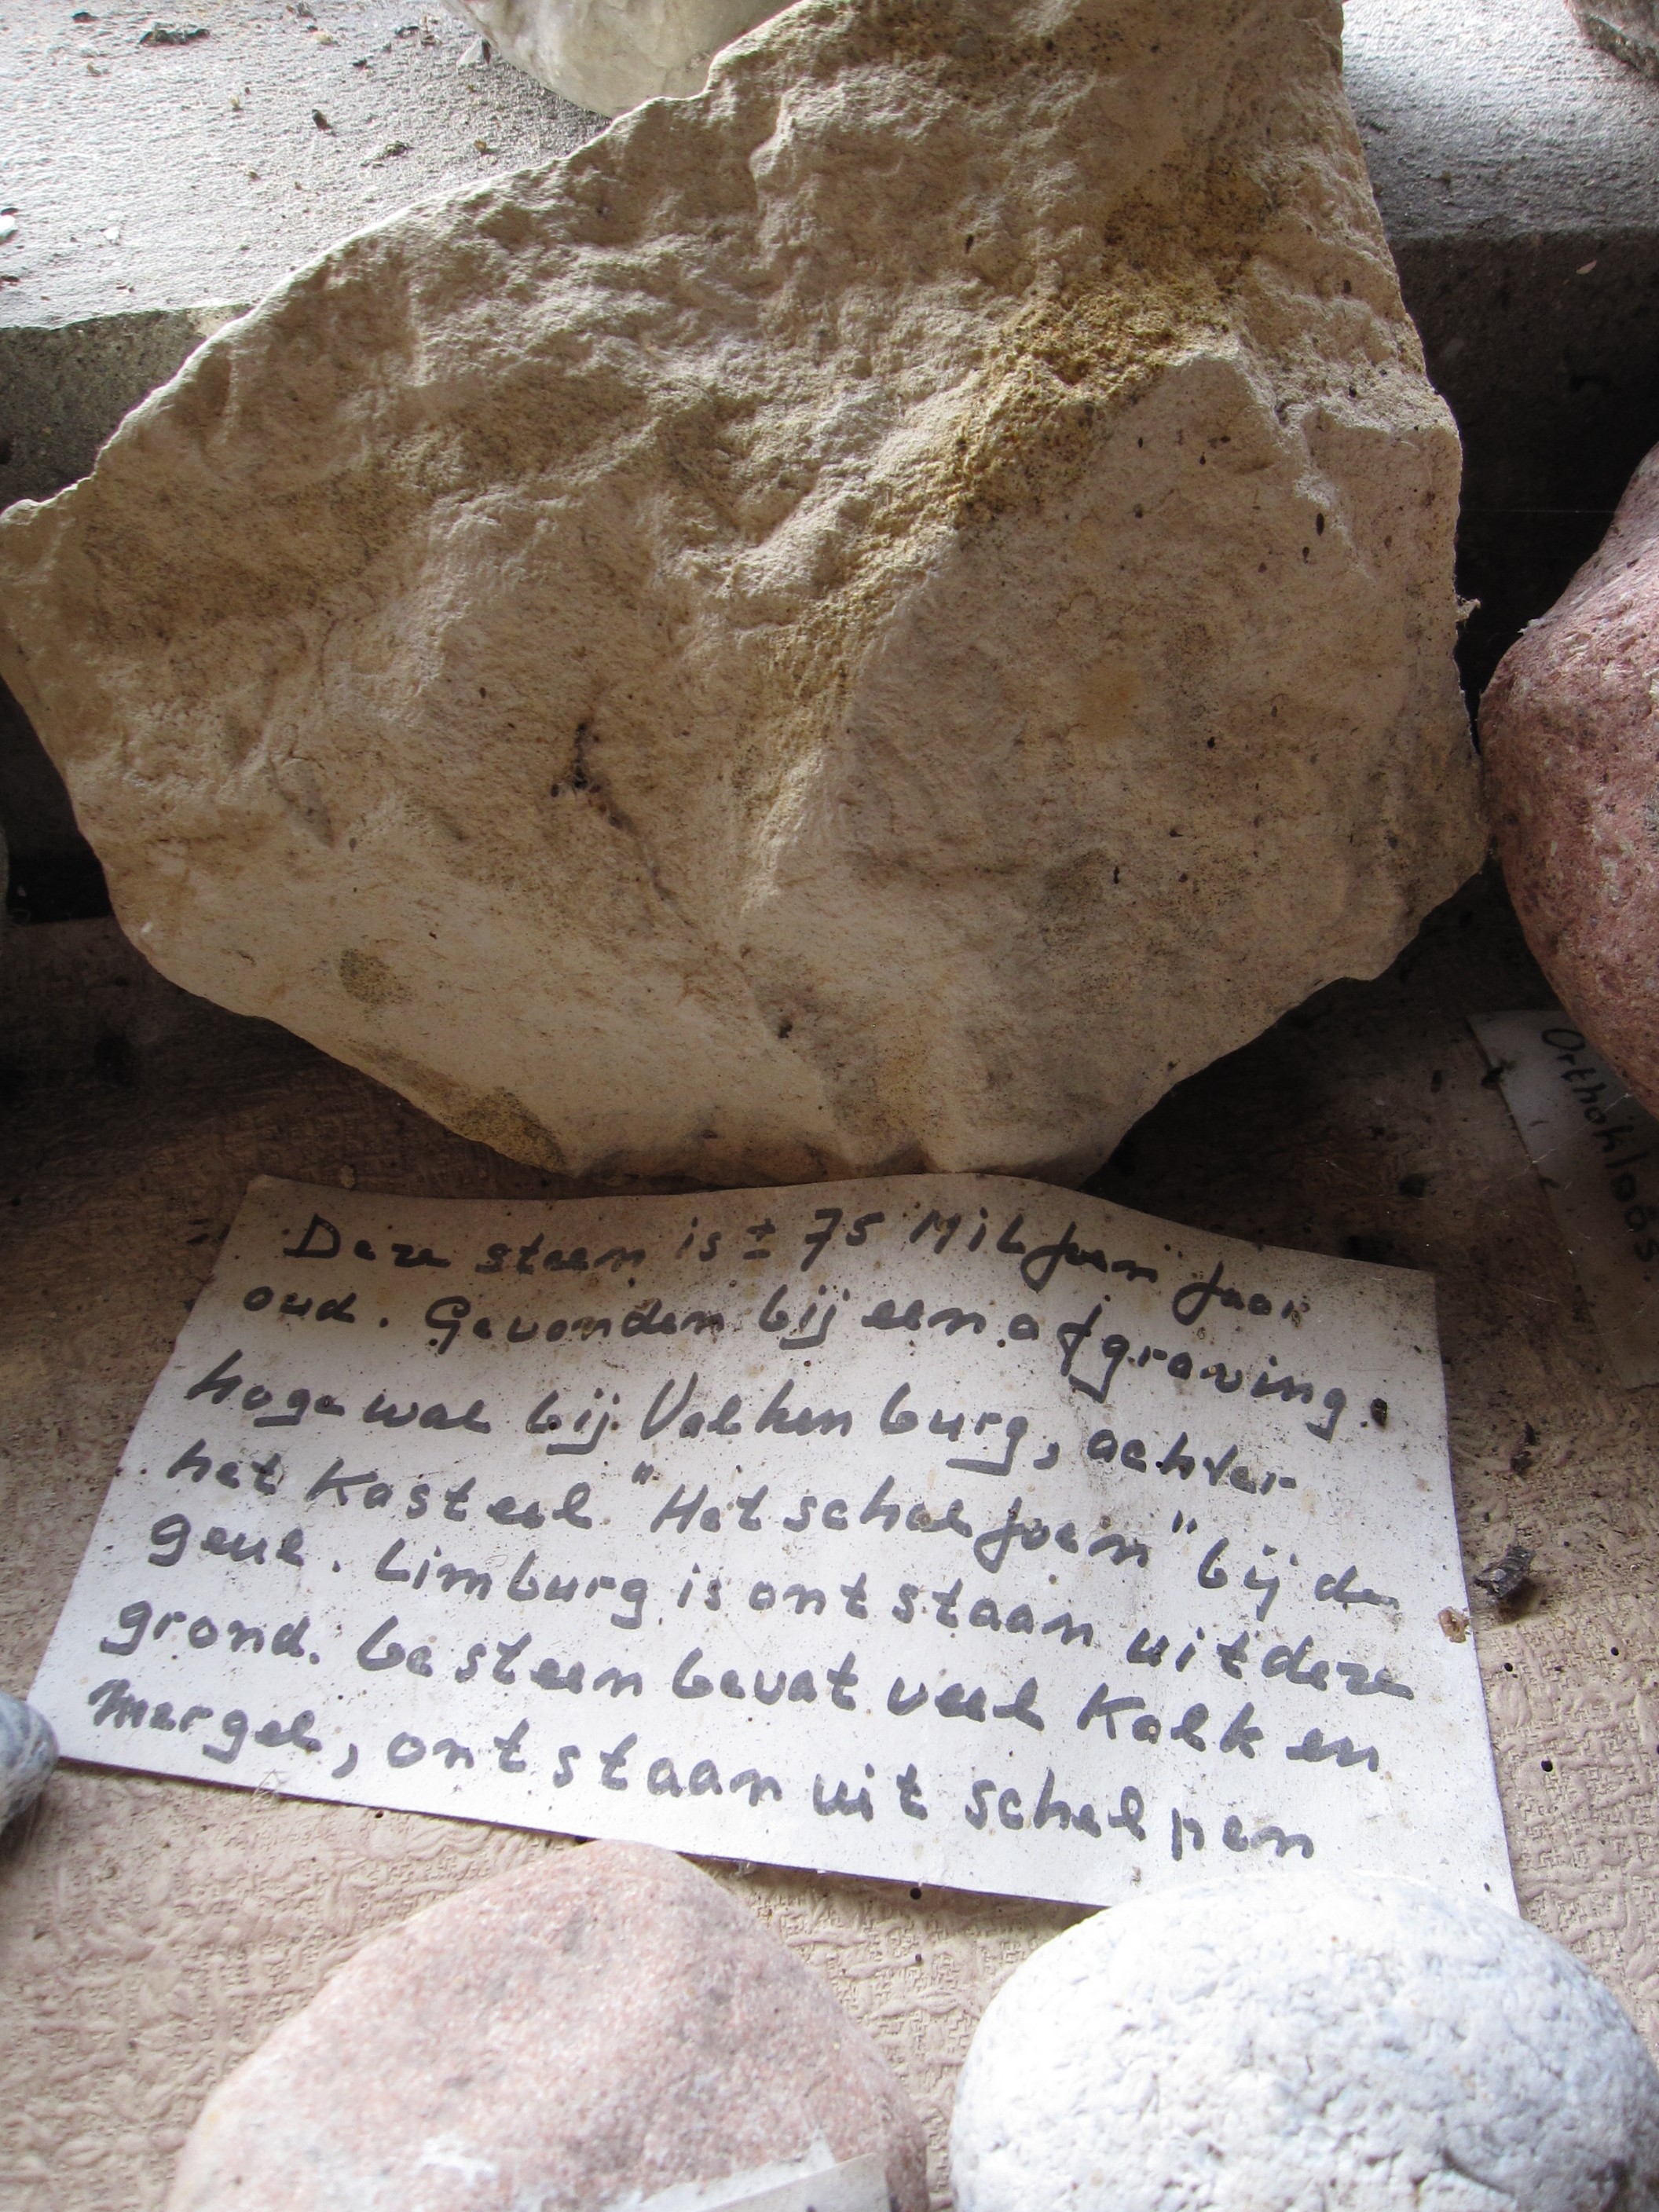 Deze steen is ± 75 Miljoen Jaar
oud. Gevonden bij een afgraving.
hoge wal bij Valkenburg, achter
het Kasteel "Het schaljoen" bij de
geul. Limburg is ontstaan uit deze
grond. De steen bevat veel Kalk en
Mergel, ontstaan uit schelpen
Orthoklaas